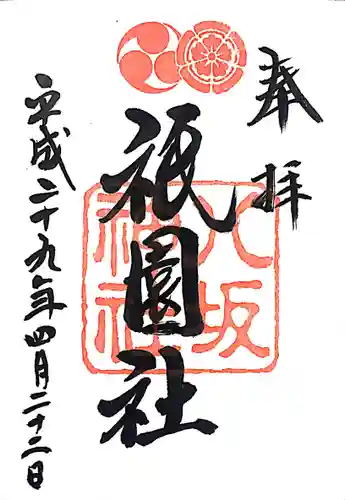 奉拝
八坂神社
祇園社
平成二十九年四月二十二日